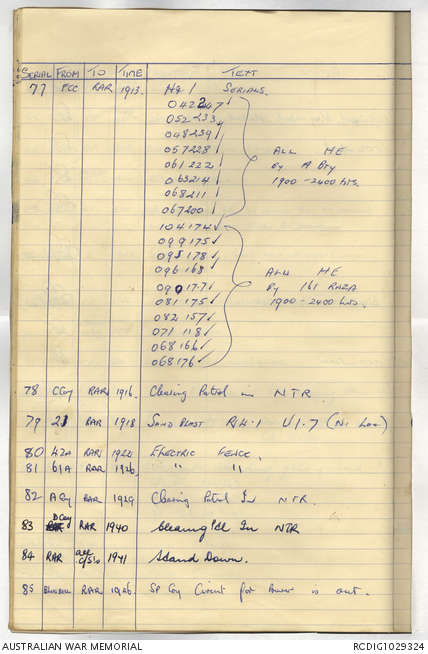 SERIAL FROM TO TIME TEXT
77 FCC RAR 1913. H&I SERIALS.
042247 ✓
052233 ✓
048239 ✓
057228 ✓
061222 ✓
063214 ✓
068211 ✓
067200 ✓
ALL HE
By A Bty
1900-2400 hrs.
104174 ✓
099175 ✓
095178 ✓
096168
090177 ✓
081175 ✓
082157 ✓
071118 ✓
068166 ✓
068176 ✓
ALL HE
By 161 RNZA
1900-2400 hrs.
78 C Coy RAR 1916. Clearing Patrol in NTR.
79 21 RAR 1918 SAND BLAST R/H-1 U/1-7 (N1 Loc)
80 42A RAR 1920 ELECTRIC FENCE.
81 61A RAR 1926. " "
82 A Coy RAR 1929 Clearing Patrol In NTR.
83 D Coy RAR 1940 Clearing Ptl In NTR
84 RAR all C/S's 1941 Stand Down.
85 RAR 1946. Sp Coy Circuit for Power is out.
AUSTRALIAN WAR MEMORIAL RCDIG1029324